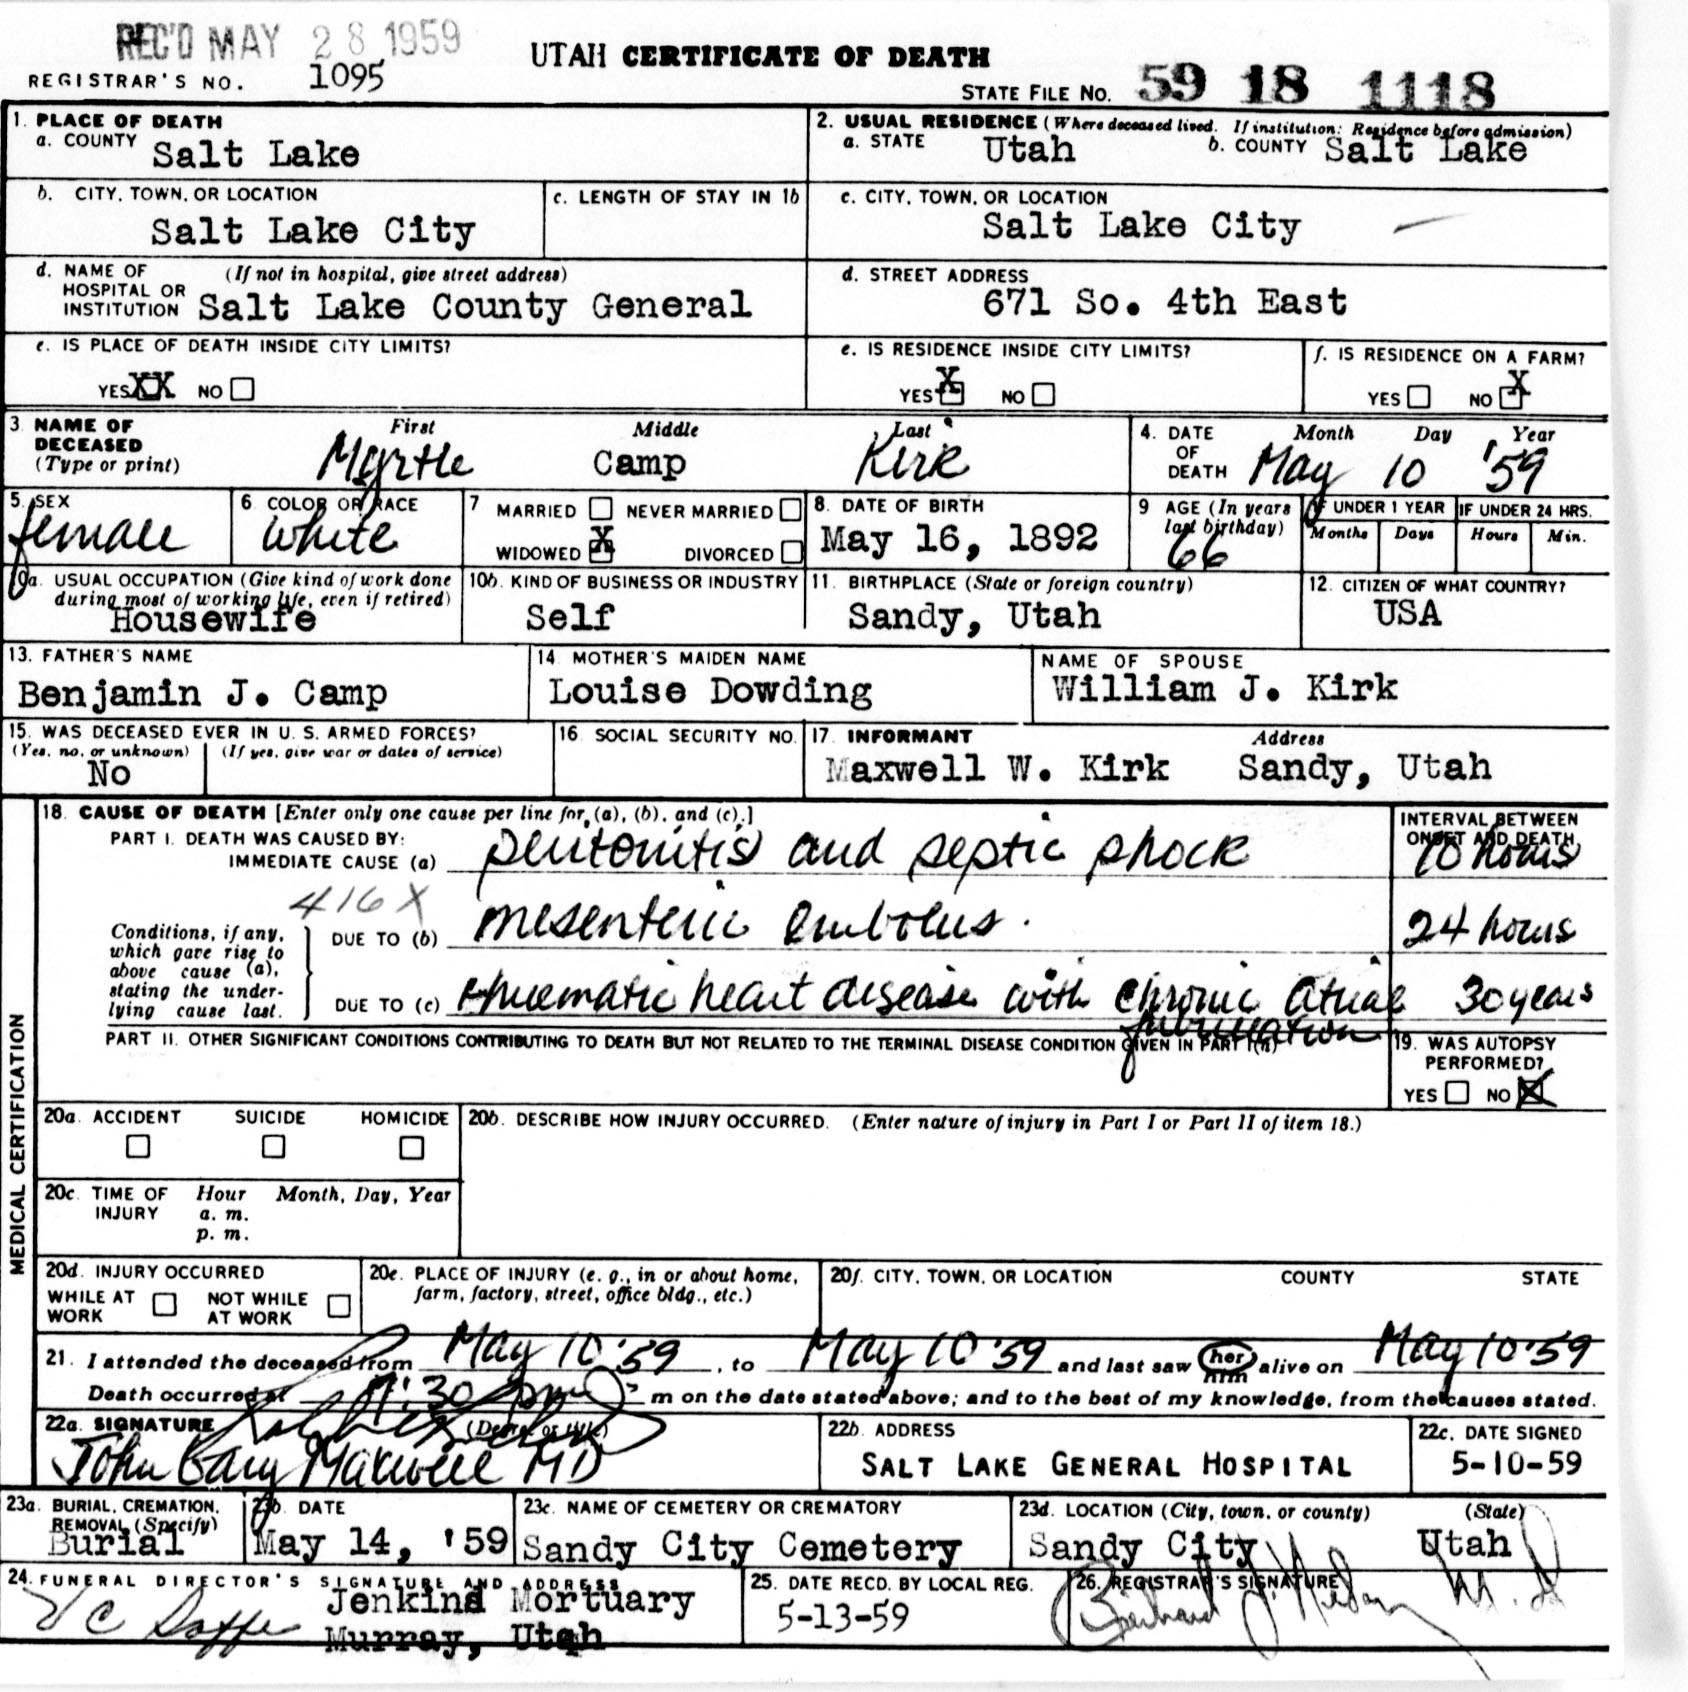 REC'D MAY 28 1959
UTAH CERTIFICATE OF DEATH
REGISTRAR'S NO. 1095
STATE FILE NO. 59 18 1118
1. PLACE OF DEATH
a. COUNTY Salt Lake
2. USUAL RESIDENCE (Where deceased lived. If institution: Residence before admission)
a. STATE Utah b. COUNTY Salt Lake
b. CITY, TOWN, OR LOCATION
Salt Lake City
c. LENGTH OF STAY IN 1b
c. CITY, TOWN, OR LOCATION
Salt Lake City
d. NAME OF HOSPITAL OR INSTITUTION (If not in hospital, give street address)
Salt Lake County General
d. STREET ADDRESS
671 So. 4th East
e. IS PLACE OF DEATH INSIDE CITY LIMITS?
YES XX NO
e. IS RESIDENCE INSIDE CITY LIMITS?
YES X NO
f. IS RESIDENCE ON A FARM?
YES NO X
3. NAME OF DECEASED (Type or print)
First Middle Last
Myrtle Camp Kirk
4. DATE OF DEATH Month Day Year
May 10 '59
5. SEX
female
6. COLOR OR RACE
white
7 MARRIED NEVER MARRIED
WIDOWED X DIVORCED
8. DATE OF BIRTH
May 16, 1892
9 AGE (In years last birthday)
66
IF UNDER 1 YEAR IF UNDER 24 HRS.
Months Days Hours Min.
10a. USUAL OCCUPATION (Give kind of work done during most of working life, even if retired)
Housewife
10b. KIND OF BUSINESS OR INDUSTRY
Self
11. BIRTHPLACE (State or foreign country)
Sandy, Utah
12. CITIZEN OF WHAT COUNTRY?
USA
13. FATHER'S NAME
Benjamin J. Camp
14. MOTHER'S MAIDEN NAME
Louise Dowding
NAME OF SPOUSE
William J. Kirk
15. WAS DECEASED EVER IN U. S. ARMED FORCES?
(Yes, no, or unknown) (If yes, give war or dates of service)
No
16. SOCIAL SECURITY NO.
17. INFORMANT Address
Maxwell W. Kirk Sandy, Utah
MEDICAL CERTIFICATION
18. CAUSE OF DEATH [Enter only one cause per line for (a), (b), and (c).]
PART I. DEATH WAS CAUSED BY:
IMMEDIATE CAUSE (a) peritonitis and septic shock
INTERVAL BETWEEN ONSET AND DEATH
10 hours
416X
Conditions, if any, which gave rise to above cause (a), stating the underlying cause last.
DUE TO (b) mesenteric embolus. 24 hours
DUE TO (c) rheumatic heart disease with chronic atrial fibrillation 30 years
PART II. OTHER SIGNIFICANT CONDITIONS CONTRIBUTING TO DEATH BUT NOT RELATED TO THE TERMINAL DISEASE CONDITION GIVEN IN PART I(a)
19. WAS AUTOPSY PERFORMED?
YES NO X
20a. ACCIDENT SUICIDE HOMICIDE
20b. DESCRIBE HOW INJURY OCCURRED. (Enter nature of injury in Part I or Part II of item 18.)
20c. TIME OF INJURY Hour Month, Day, Year
a. m.
p. m.
20d. INJURY OCCURRED
WHILE AT WORK NOT WHILE AT WORK
20e. PLACE OF INJURY (e. g., in or about home, farm, factory, street, office bldg., etc.)
20f. CITY, TOWN, OR LOCATION COUNTY STATE
21. I attended the deceased from May 10 '59, to May 10 '59 and last saw her him alive on May 10 '59
Death occurred at :30 pm m on the date stated above; and to the best of my knowledge, from the causes stated.
22a. SIGNATURE (Degree or title)
John Gary Maxwell MD
22b. ADDRESS
SALT LAKE GENERAL HOSPITAL
22c. DATE SIGNED
5-10-59
23a. BURIAL, CREMATION, REMOVAL (Specify)
Burial
23b. DATE
May 14, '59
23c. NAME OF CEMETERY OR CREMATORY
Sandy City Cemetery
23d. LOCATION (City, town, or county) (State)
Sandy City Utah
24. FUNERAL DIRECTOR'S SIGNATURE AND ADDRESS
Jenkins Mortuary
Murray, Utah
25. DATE RECD. BY LOCAL REG.
5-13-59
26. REGISTRAR'S SIGNATURE